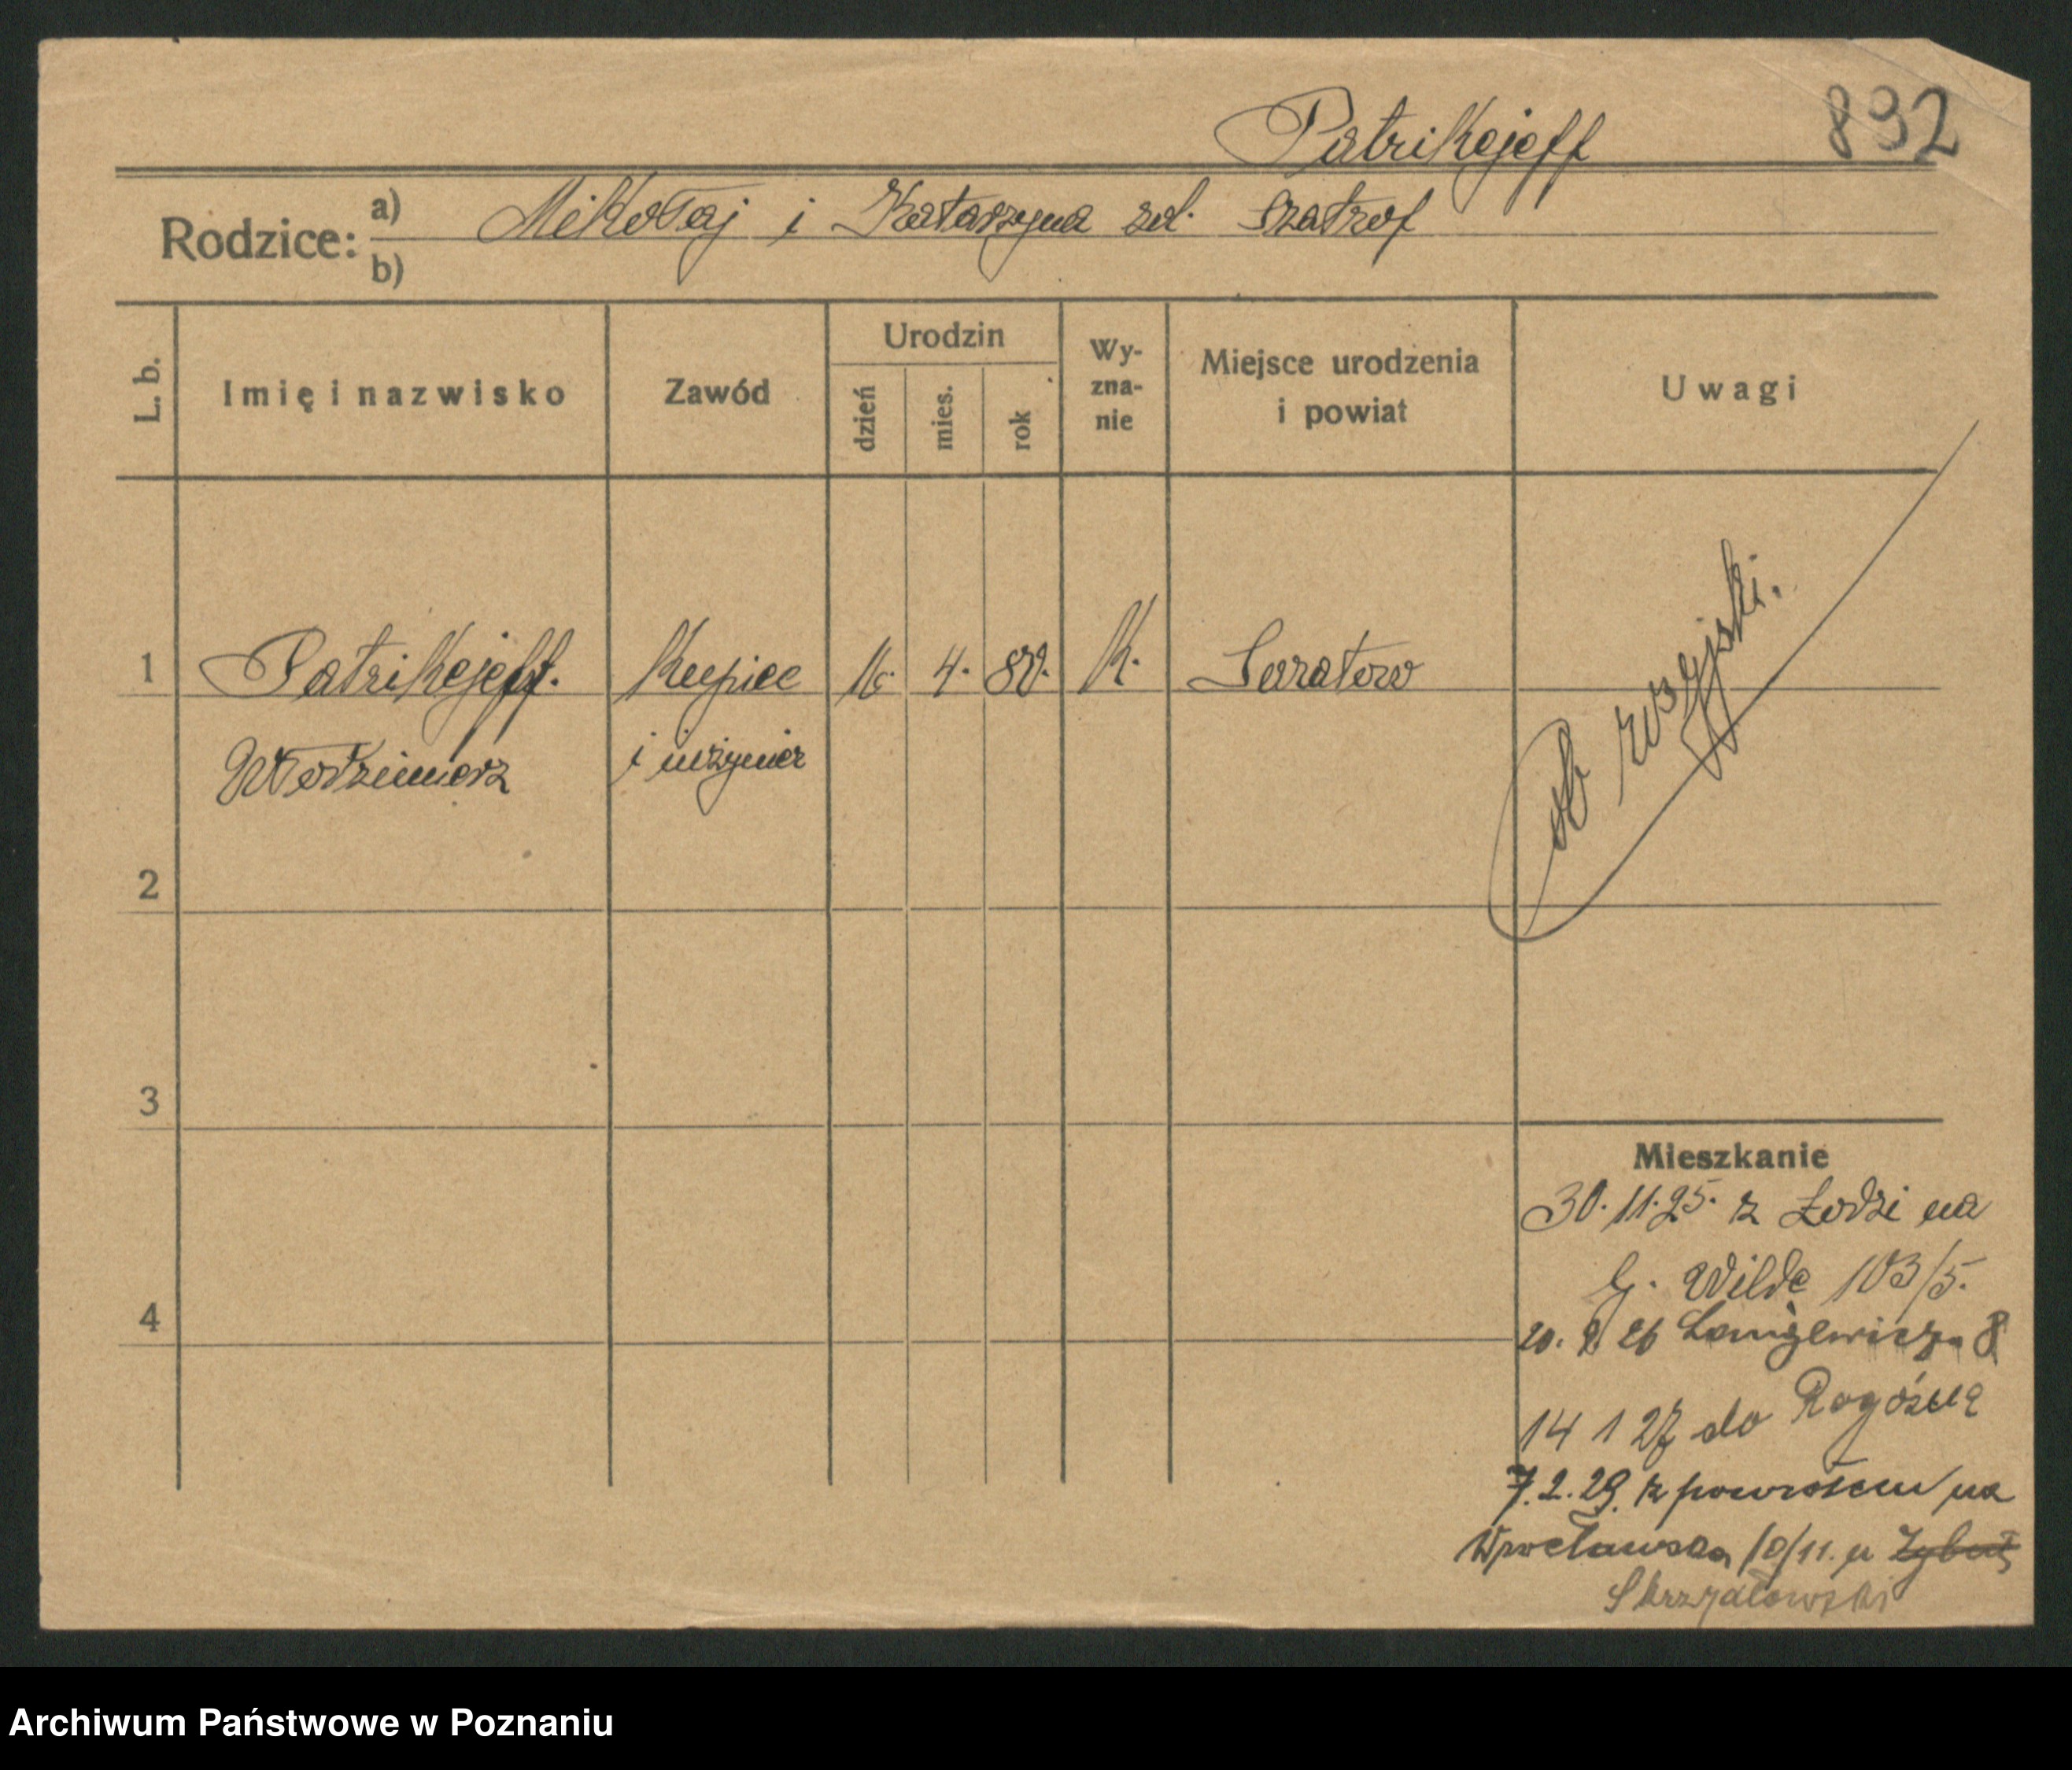 Patrikejeff 832
Rodzice: a) Mikołaj i Katarzyna zd. Szatrof
b)
L. b. Imię i nazwisko Zawód Urodzin dzień mies. rok Wy-zna-nie Miejsce urodzenia i powiat Uwagi
1 Patrikejeff. Kupiec 4. K. Saratow
Włodzimierz i inżynier
ob rosyjski.
2
3
4
Mieszkanie
30.11.25. z Łodzi na
G. Wilde 103/5.
20. 26 8
14 1 27 do Rogoźna
7.2.29. z powrotem na
Wrocławska 10/11. u
Skrzydlewski
Archiwum Państwowe w Poznaniu